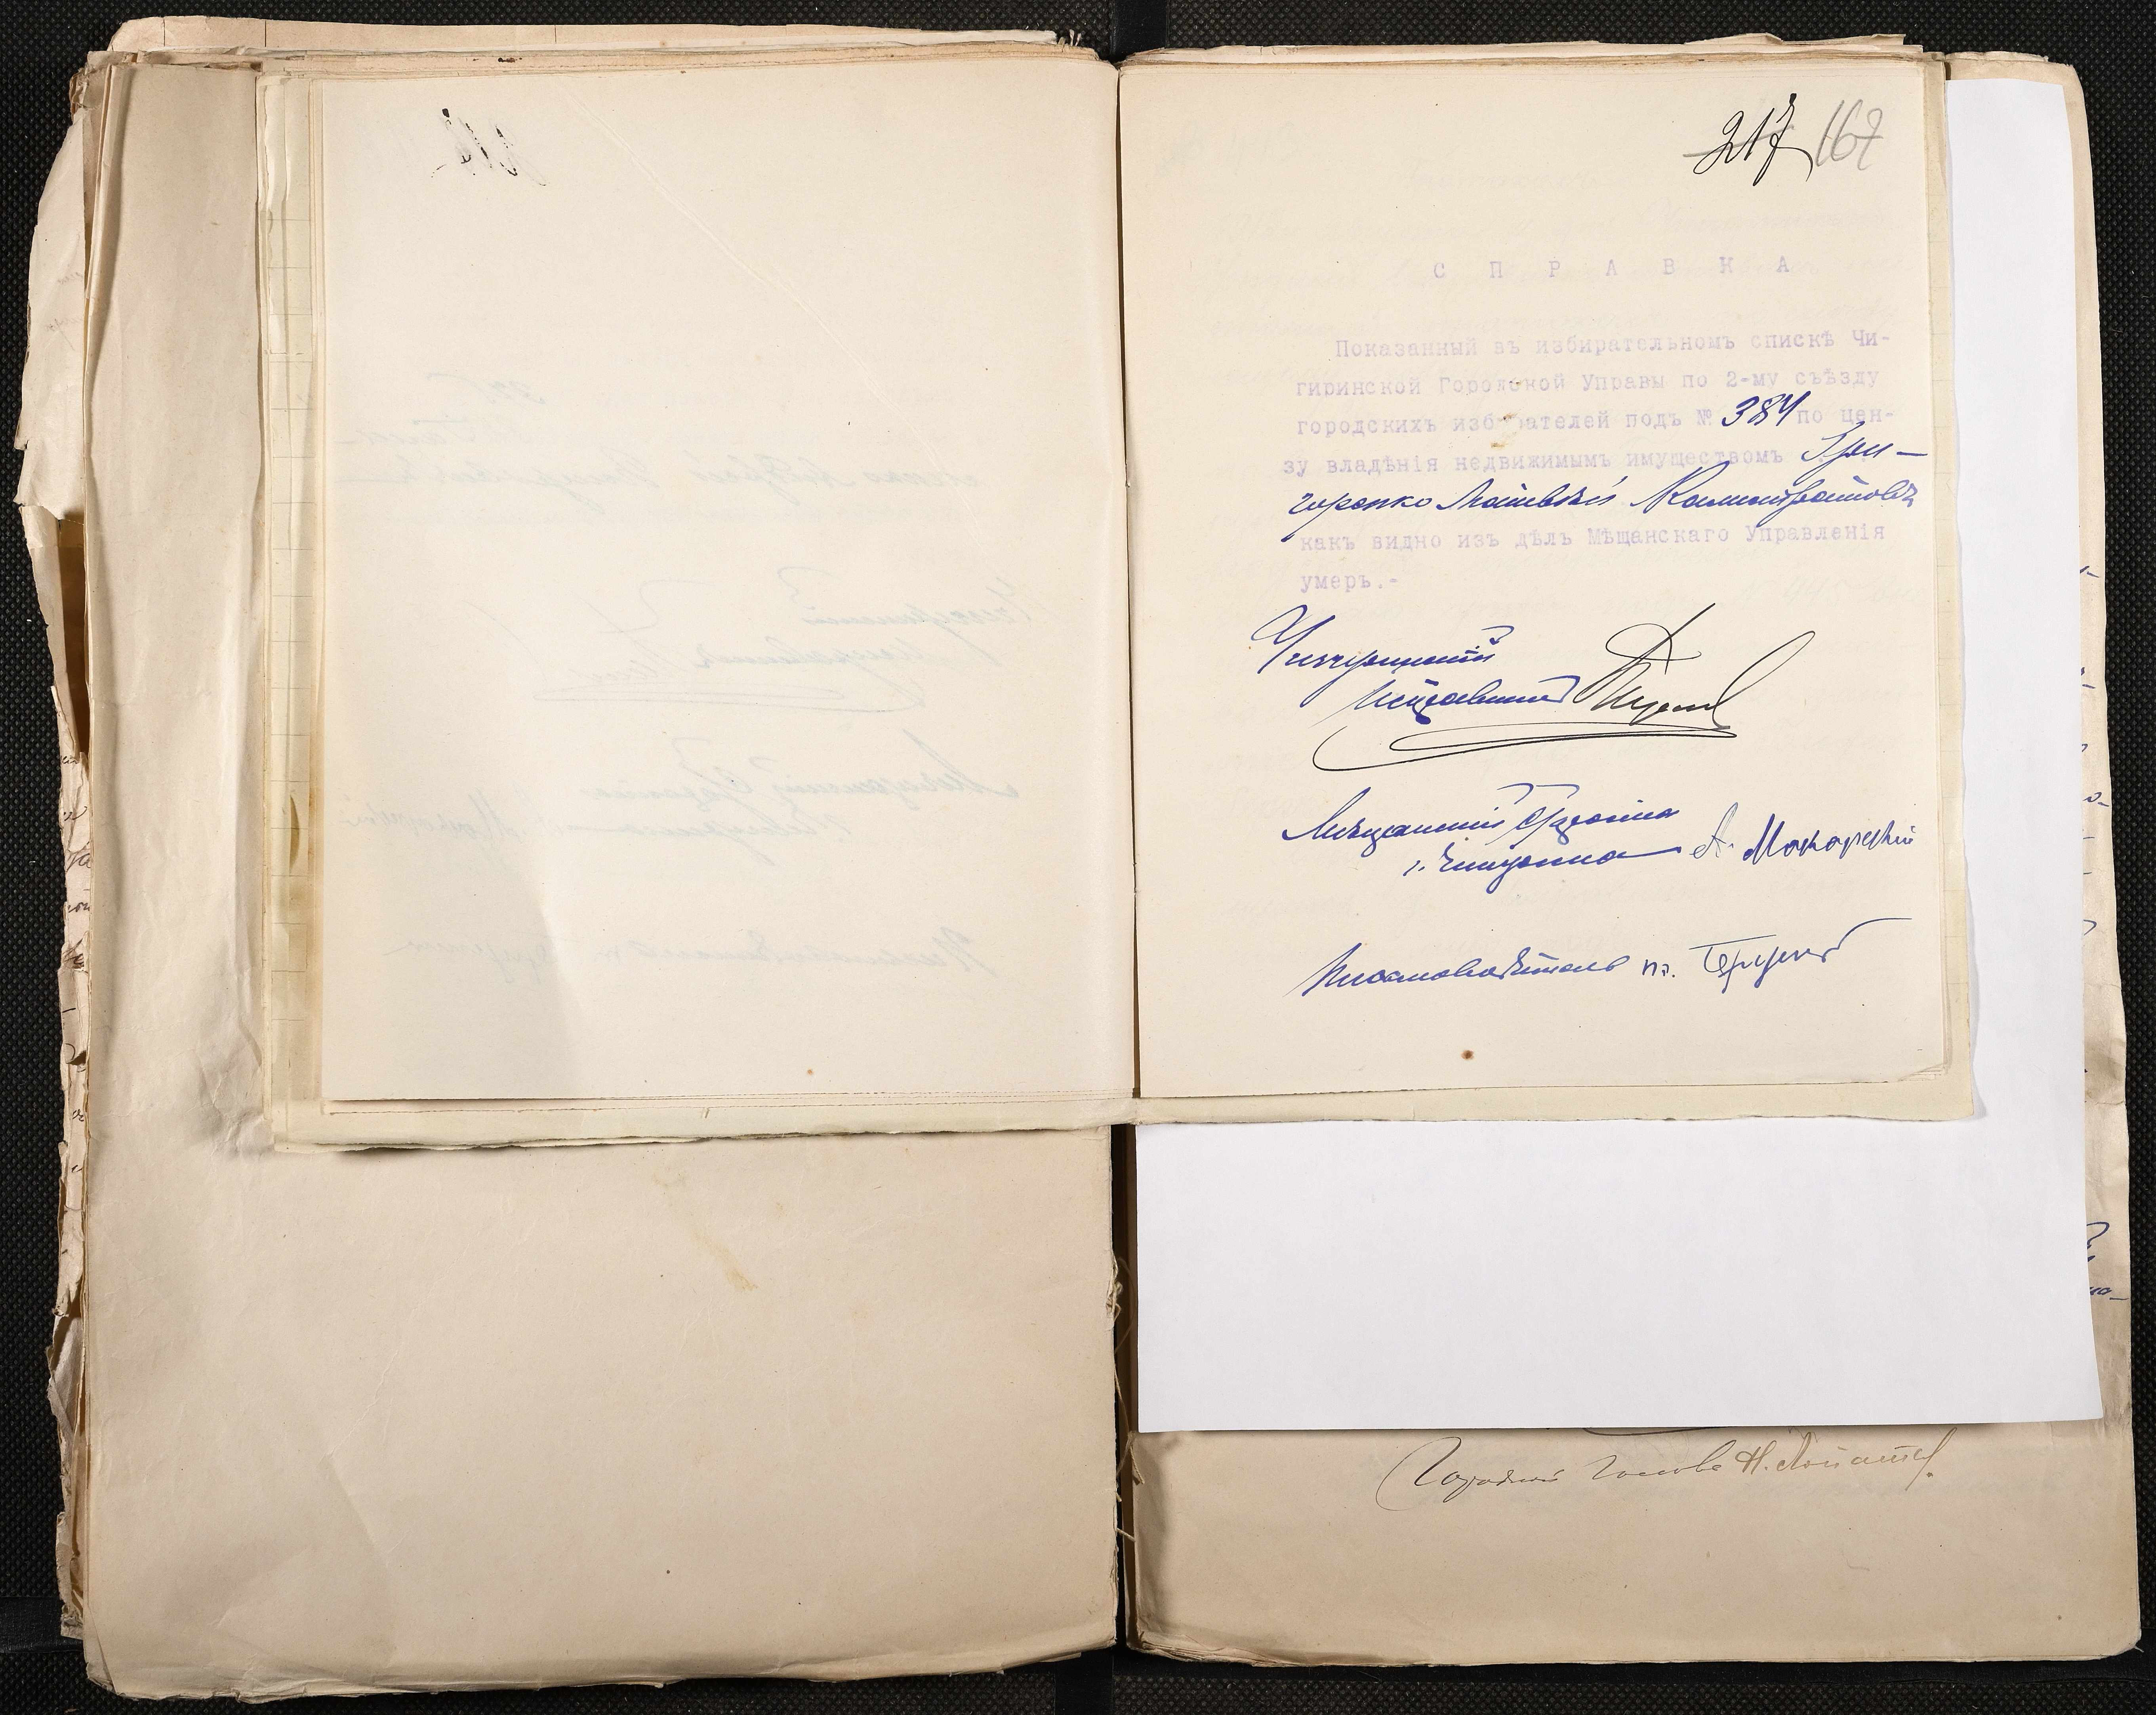 217 167
С П Р А В К А
Показанный въ избирательномъ спискѣ Чи-
гиринской Городской Управы по 2-му съѣзду
городскихъ избирателей подъ № 384 по цен-
зу владѣнія недвижимымъ имуществомъ Гри-
горенко Матвѣй Калистратовъ
какъ видно изъ дѣлъ Мѣщанскаго Управленія
умеръ.-
Чигиринскій
Исправникъ
Мѣщанскій Староста
г. Чигирина А. Макаревскій
Письмоводитель
Городской Голова Н.